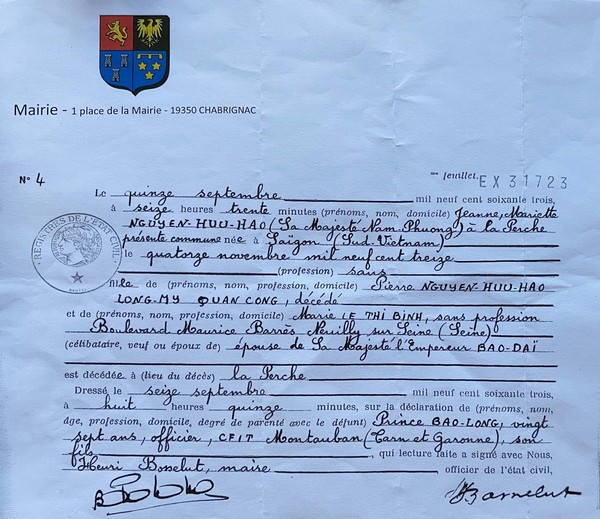 Mairie - 1 place de la Mairie - 19350 CHABRIGNAC
N° 4
feuillet. EX 31723
Le quinze septembre mil neuf cent soixante trois,
à seize heures trente minutes (prénoms, nom, domicile) Jeanne, Mariette
NGUYEN-HUU-HAO (Sa Majesté Nam-Phuong) à la Perche
présente commune née à Saïgon (Sud-Vietnam)
le quatorze novembre mil neuf cent treize
(profession) sans
fille de (prénoms, nom, profession, domicile) Pierre NGUYEN-HUU-HAO
LONG-MY QUAN CONG, décédé
et de (prénoms, nom, profession, domicile) Marie LE THI BINH, sans profession
Boulevard Maurice Barrès Neuilly sur Seine (Seine)
(célibataire, veuf ou époux de) épouse de Sa Majesté l'Empereur BAO-DAÏ
est décédée à (lieu du décès) la Perche
Dressé le seize septembre mil neuf cent soixante trois,
à huit heures quinze minutes, sur la déclaration de (prénoms, nom,
âge, profession, domicile, degré de parenté avec le défunt) Prince BAO-LONG, vingt
sept ans, officier, CFIT Montauban (Tarn et Garonne), son
fils, qui lecture faite a signé avec Nous,
Henri Bosselut, maire officier de l'état civil,
REGISTRES DE L'ETAT CIVIL